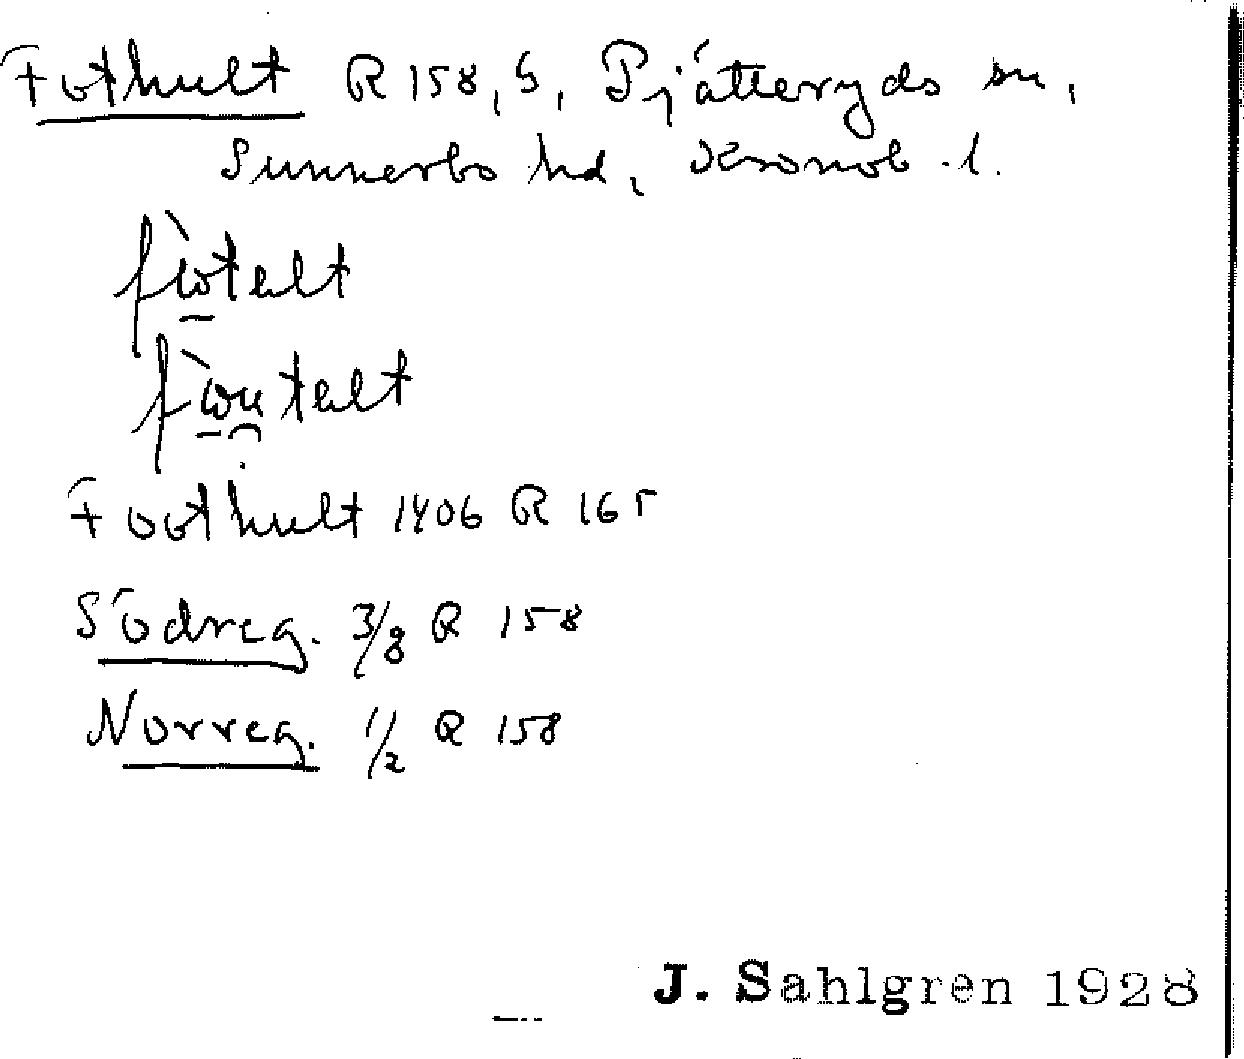 Fothult R 158, S, Pjätteryds sn,
Sunnerbo hd, Kronob. l.
fòtɐlt
fòutɐlt
Foothult 1406 R 165
Södreg. 3/8 R 158
Norreg. 1/2 R 158
J. Sahlgren 1928